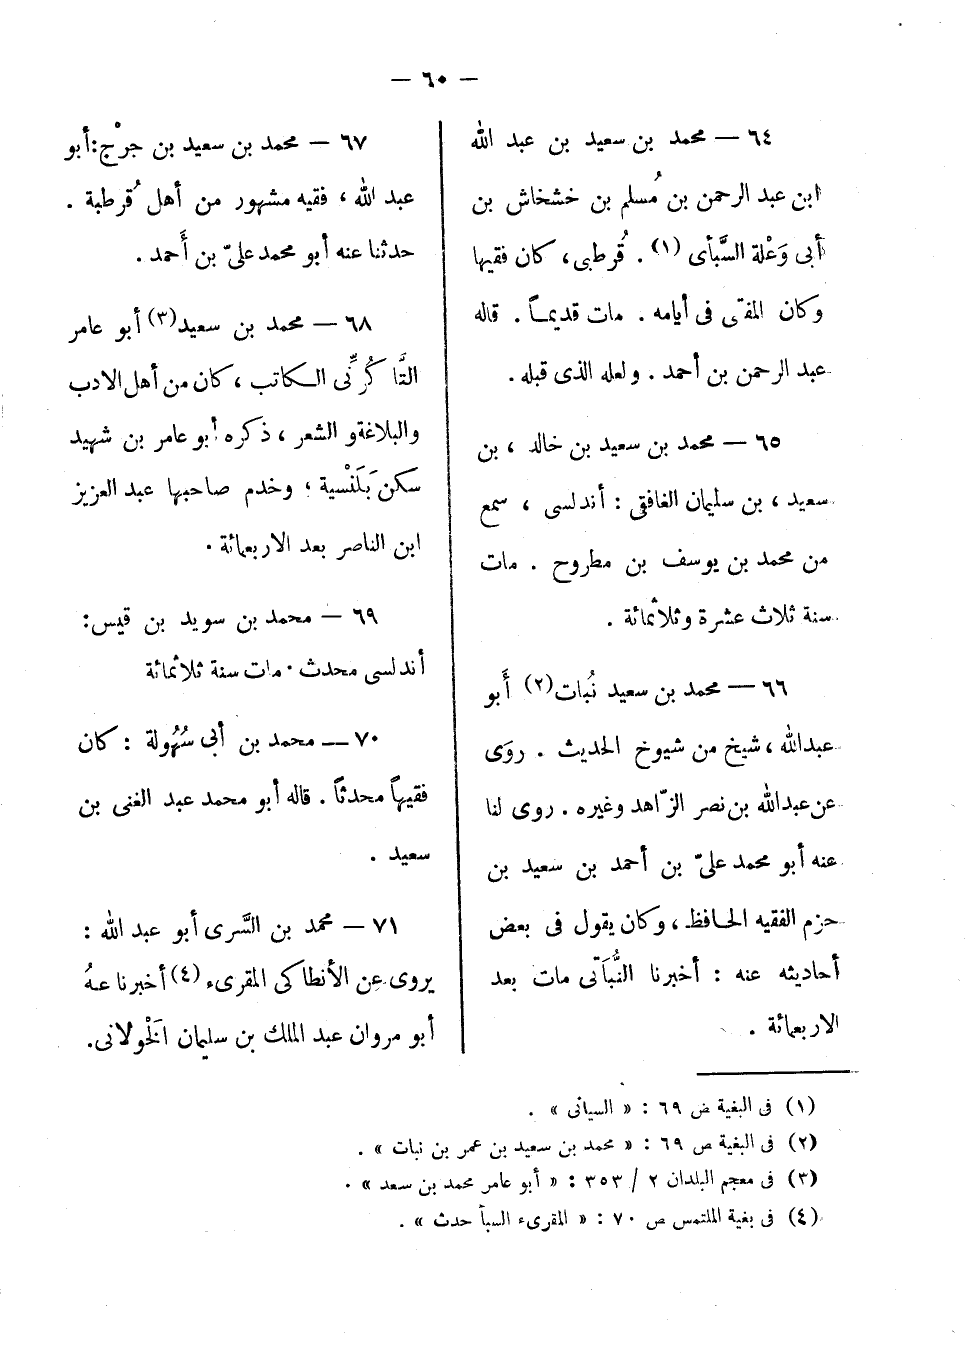 — ٦٠ —
٦٤ — محمد بن سعيد بن عبد الله
ابن عبد الرحمن بن مُسلم بن خشخاش بن
أبى وَعْلة السَّبأى (١) . قُرطبى، كان فقيها
وكان المفتى فى أيامه . مات قديمـاً . قاله
عبد الرحمن بن أحمد . ولعله الذى قبله .
٦٥ — محمد بن سعيد بن خالد ، بن
سعيد ، بن سليمان الغافقى : أندلسى ، سمع
من محمد بن يوسف بن مطروح . مات
سنة ثلاث عشرة وثلاثمائة .
٦٦ — محمد بن سعيد نُبات (٢) أَبو
عبدالله ، شيخ من شيوخ الحديث . روَى
عن عبدالله بن نصر الزّاهد وغيره . روى لنا
عنه أبو محمد علىّ بن أحمد بن سعيد بن
حزم الفقيه الحافظ ، وكان يقول فى بعض
أحاديثه عنه : أخبرنا النُّباتى مات بعد
الاربعمائة .
٦٧ — محمد بن سعيد بن جرْج: أبو
عبد الله ، فقيه مشهور من أهل قُرطبة .
حدثنا عنه أبو محمد علىّ بن أَحمد .
٦٨ — محمد بن سعيد (٣) أبو عامر
التَّاكُرنِّى الـكاتب ، كان من أهل الادب
والبلاغةو الشعر ، ذكره أبو عامر بن شهيد
سكن بَلَنْسية ؛ وخدم صاحبها عبد العزيز
ابن الناصر بعد الاربعمائة .
٦٩ — محمد بن سويد بن قيس:
أندلسى محدث . مات سنة ثلاثمائة
٧٠ — محمد بن أبى سُهُولة : كان
فقيهاً محدثاً . قاله أبو محمد عبد الغنى بن
سعيد .
٧١ — محمد بن السَّرى أبو عبد الله :
يروى عن الأنطاكى المقرىء (٤) أخبرنا عنهُ
أبو مروان عبد الملك بن سليمان الخَوْلانى.
(١) فى البغية ص ٦٩ : « السيانى » .
(٢) فى البغية ص ٦٩ : « محمد بن سعيد بن عمر بن نبات » .
(٣) فى معجم البلدان ٢ / ٣٥٣ : « أبو عامر محمد بن سعد » .
(٤) فى بغية الملتمس ص ٧٠ : « المقرىء السبأ حدث » .